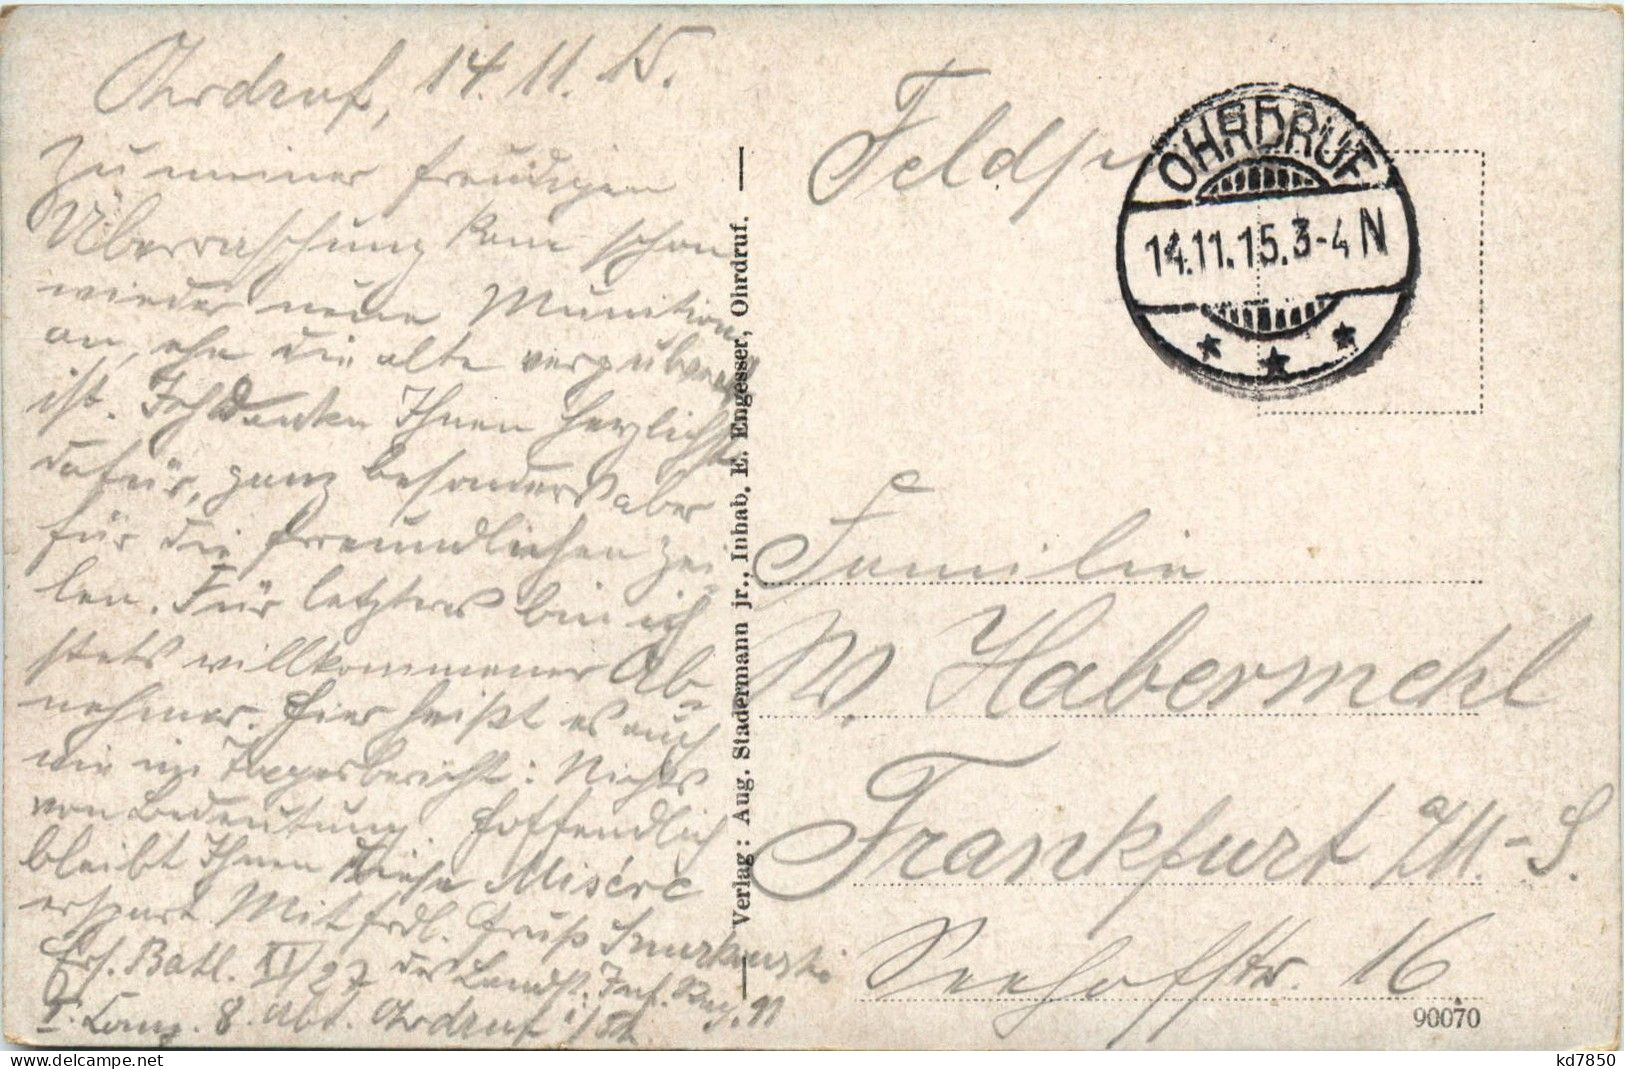 Ohrdruf, 14.11.15.
Zu meiner freudigen
Überraschung kam schon
wieder neue Munition
an, ehe die alte verpulvert
ist. Ich danke Ihnen herzlichst
dafür, ganz besonders aber
für die freundlichen Zei-
len. Für letzteres bin ich
stets willkommener Ab-
nehmer. Hier heißt es auch
wie im Tagesbericht: Nichts
von Bedeutung. Hoffendlich
bleibt Ihnen diese Misére
erspart. Mit frdl. Gruß
Ers. Batl. XI/27 des Landst. Inf. Reg. 11
2. Komp. 8. Abt. Ohrdruf i/Th.
Verlag: Aug. Stadermann jr., Inhab. E. Engesser, Ohrdruf.
OHRDRUF
14.11.15.3-4 N
Familie
W. Habermehl
Frankfurt a/M.-S.
Seehofstr. 16
90070
kd7850